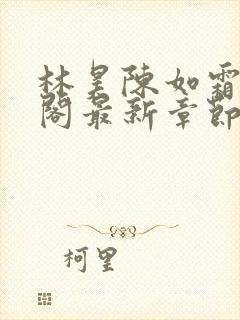 林昊陳如霜
閣最新章節
柯里